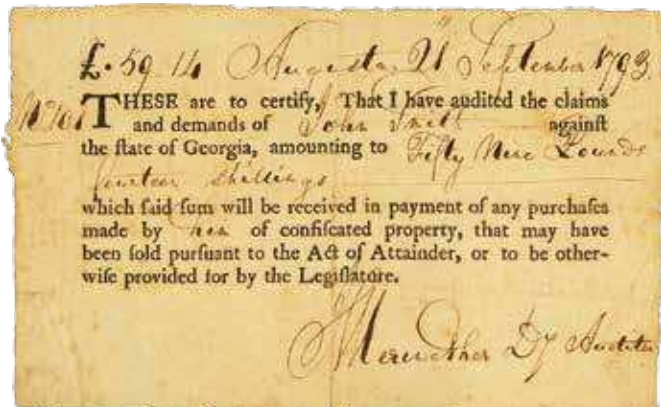 £. 59 14 Augusta 21 September 1793
THESE are to certify, That I have audited the claims
and demands of John against
the ſtate of Georgia, amounting to Fifty Nine Pounds
fourteen shillings
which ſaid ſum will be received in payment of any purchaſes
made by him of confiſcated property, that may have
been ſold purſuant to the Act of Attainder, or to be other-
wiſe provided for by the Legiſlature.
Meriwether Dy Auditor